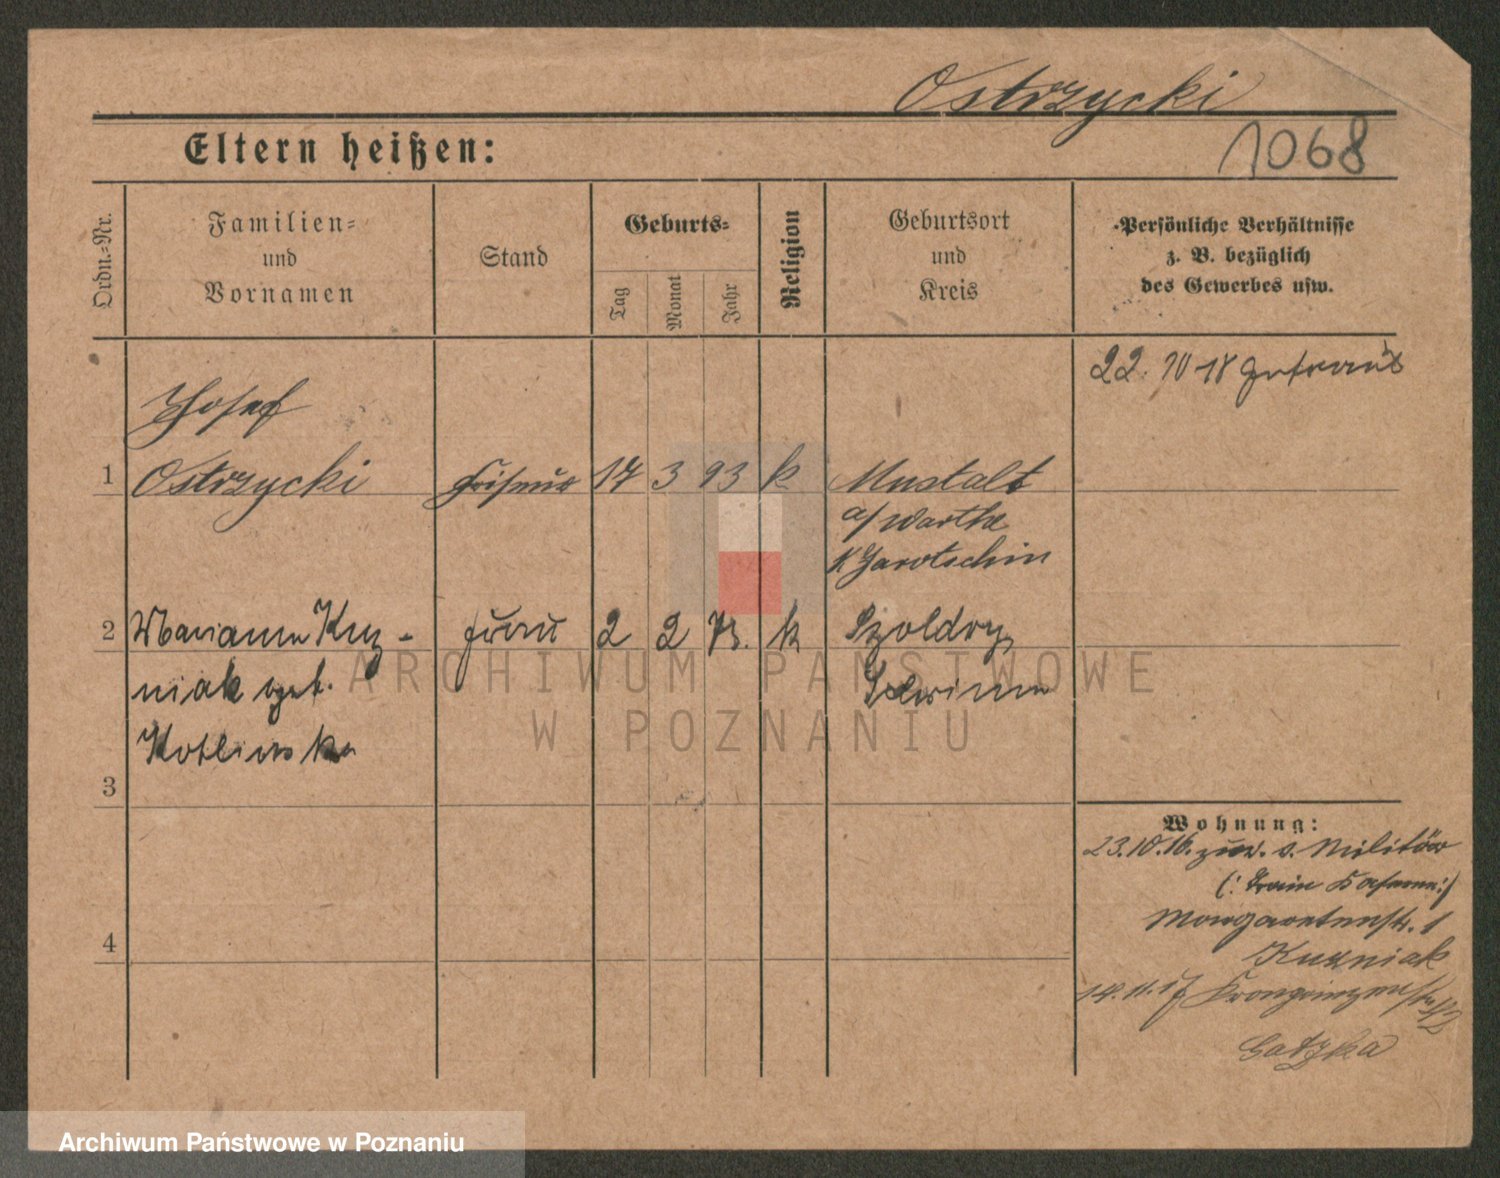 Ostrzycki
Eltern heißen:
1068
Ordn.=Nr.
Familien=
und
Vornamen
Stand
Geburts=
Tag
Monat
Jahr
Religion
Geburtsort
und
Kreis
Persönliche Verhältnisse
z. B. bezüglich
des Gewerbes usw.
22. 10 18 getraut
Josef
1 Ostrzycki Friseur 17 3 93 k
a/ Warthe
K Jarotschin
2 Marianna Kuz- Frau 2 2 k Szoldry
niak geb. Schrimm
Kotlinska
3
4
Wohnung:
23.10.16. zur. v. Militär
(: Train Kaserne :)
Margaretenstr. 1
Kuzniak
14.11.17 Kronprinzenstr
Gatzka
ARCHIWUM PAŃSTWOWE
W POZNANIU
Archiwum Państwowe w Poznaniu